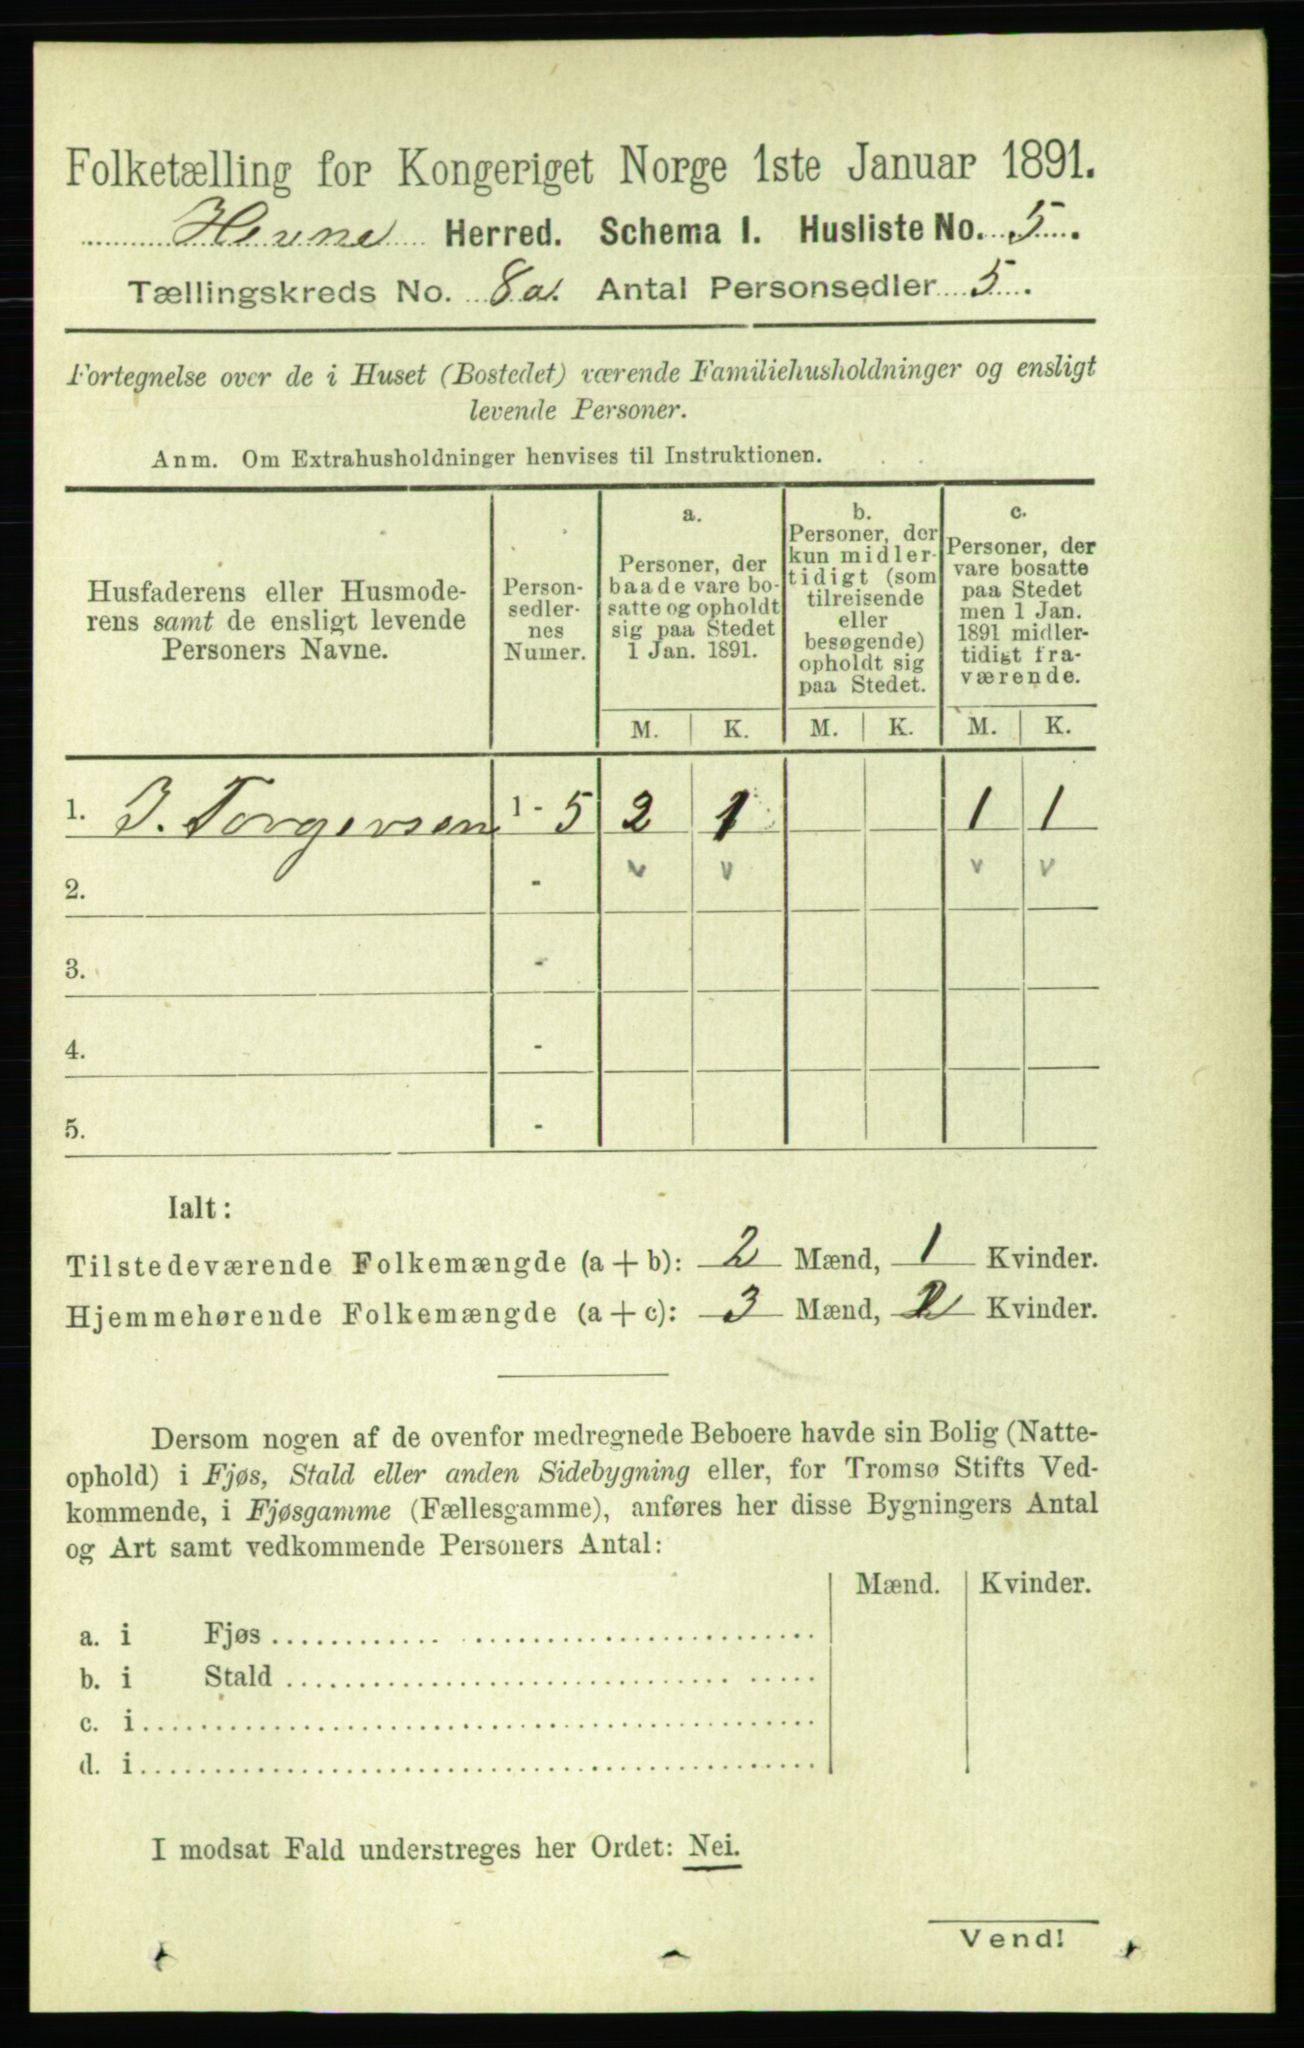 Folketælling for Kongeriget Norge 1ste Januar 1891.
Hevne Herred. Schema I. Husliste No. 5.
Tællingskreds No. 8a. Antal Personsedler 5.
Fortegnelse over de i Huset (Bostedet) værende Familiehusholdninger og ensligt
levende Personer.
Anm. Om Extrahusholdninger henvises til Instruktionen.
Husfaderens eller Husmode-
rens samt de ensligt levende
Personers Navne.
Person-
sedler-
nes
Numer.
a.
Personer, der
baade vare bo-
satte og opholdt
sig paa Stedet
1 Jan. 1891.
b.
Personer, der
kun midler-
tidigt (som
tilreisende
eller
besøgende)
opholdt sig
paa Stedet.
c.
Personer, der
vare bosatte
paa Stedet
men 1 Jan.
1891 midler-
tidigt fra-
værende.
M. K. M. K. M. K.
1. J. Torgersen 1 - 5 2 1 1 1
2. - v v v v
3. -
4. -
5. -
Ialt:
Tilstedeværende Folkemængde (a + b): 2 Mænd, 1 Kvinder.
Hjemmehørende Folkemængde (a + c): 3 Mænd, 2 Kvinder.
Dersom nogen af de ovenfor medregnede Beboere havde sin Bolig (Natte-
ophold) i Fjøs, Stald eller anden Sidebygning eller, for Tromsø Stifts Ved-
kommende, i Fjøsgamme (Fællesgamme), anføres her disse Bygningers Antal
og Art samt vedkommende Personers Antal:
Mænd. Kvinder.
a. i Fjøs
b. i Stald
c. i
d. i
I modsat Fald understreges her Ordet: Nei.
Vend!